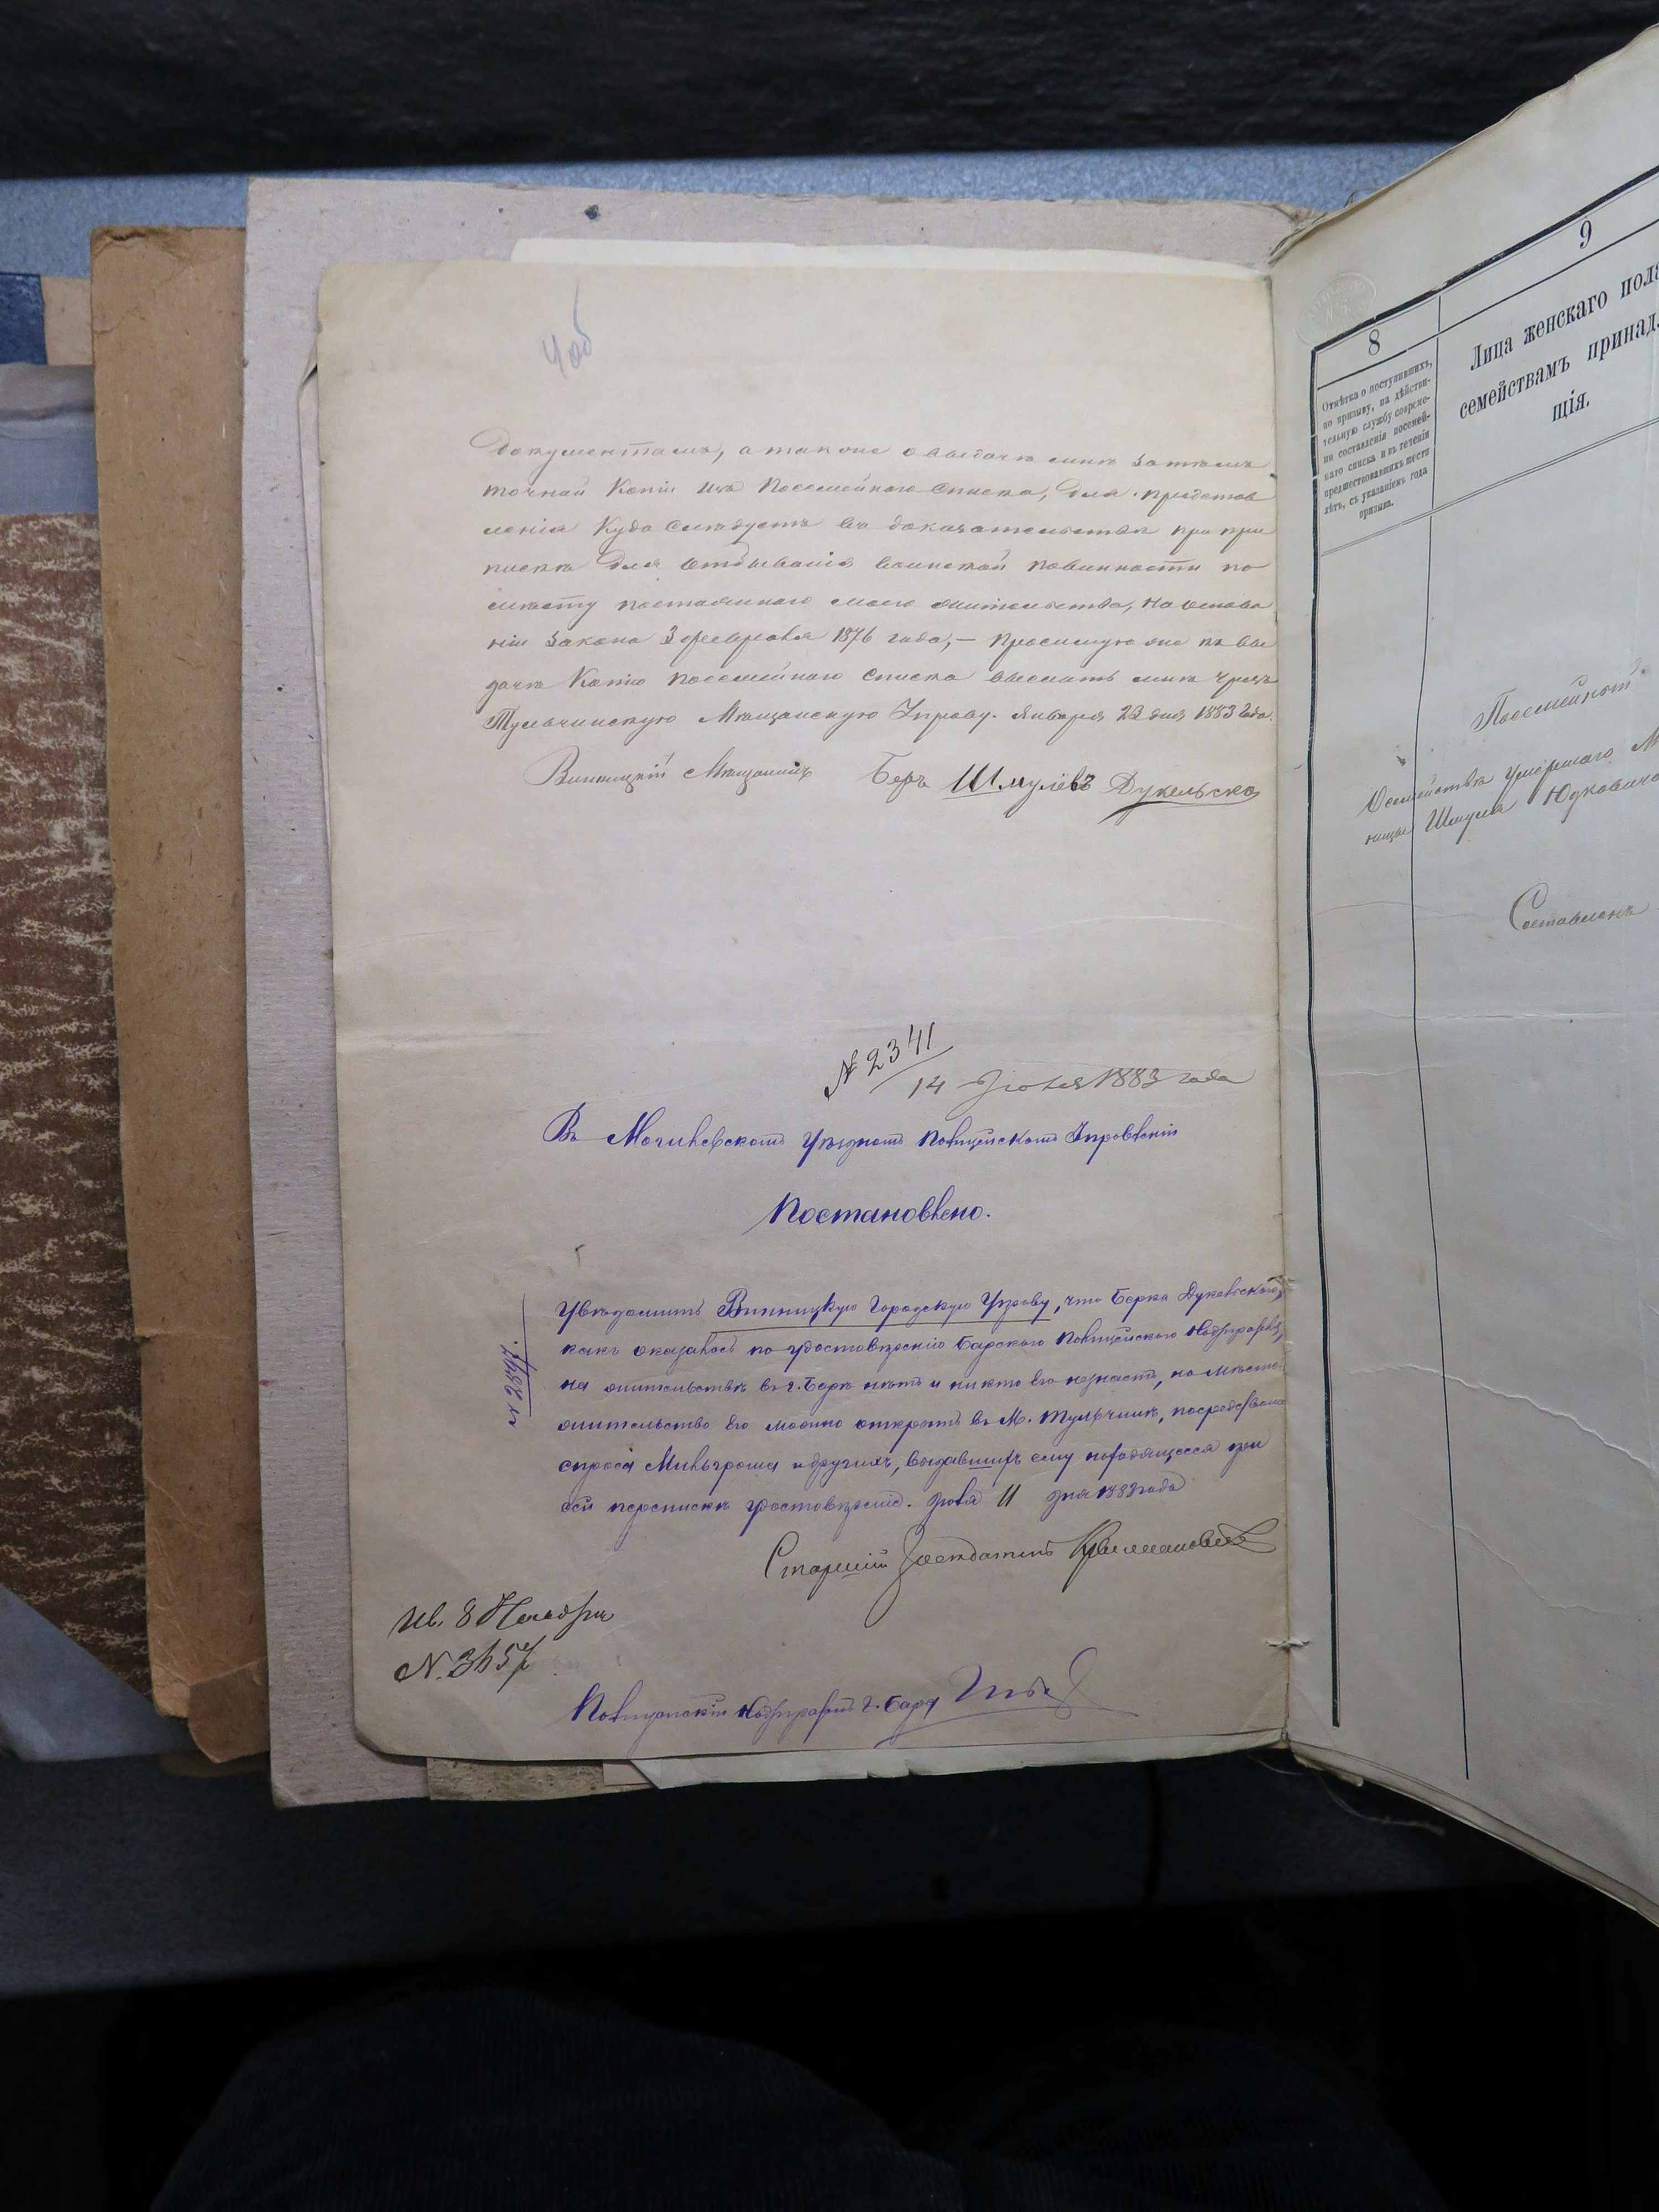 4об
Документамъ, а также о выдачѣ мнѣ затѣмъ
точной Копіи изъ Посемейнаго Списка, для представ
ленія Куда Слѣдуетъ въ доказательства при при
пискѣ для отбыванія воинской повинности по
мѣсту постояннаго моего жительства, на основа
ніи Закона 3 февраля 1876 года,— просимую же къ вы
дачѣ Копію посемейнаго Списка выслать мнѣ чрезъ
Тульчинскую Мѣщанскую Управу. Января 22 дня 1883 года.
Винницкій Мѣщанинъ Беръ Шмулевъ Дукельско
№ 2341
14 Іюля 1883 года
Въ Могилевскомъ Уѣздномъ Полицейскомъ Управленіи
Постановлено.
Увѣдомить Винницкую Городскую Управу, что Берка Дукельского,
какъ оказалось по удостовѣренію Барского Полицейского Надзирателя,
на жительствѣ въ г. Барѣ нѣтъ и никто его не знаетъ, но мѣсто
жительство его можно открыть въ М. Тульчинѣ, посредствомъ
спроса Мильгрома и другихъ, выдавшихъ ему находящееся при
сей перепискѣ удостовѣреніе. Іюля 11 дня 1883 года
Старшій Засѣдатель
№ 2597.
Ив. 8 Ноября
№ 3657
Полицейскій Надзиратель г. Бара
8
9
Отмѣтка о поступившихъ,
по призыву, на дѣйстви-
тельную службу со време-
ни составленія посемей-
наго списка и въ теченіи
предшествовавшихъ шести
лѣтъ, съ указаніемъ года
призыва.
Лица женскаго пола
семействамъ принад
щія.
Посемейный
О семействѣ умершаго
Шмуля Юдковича
Составленъ